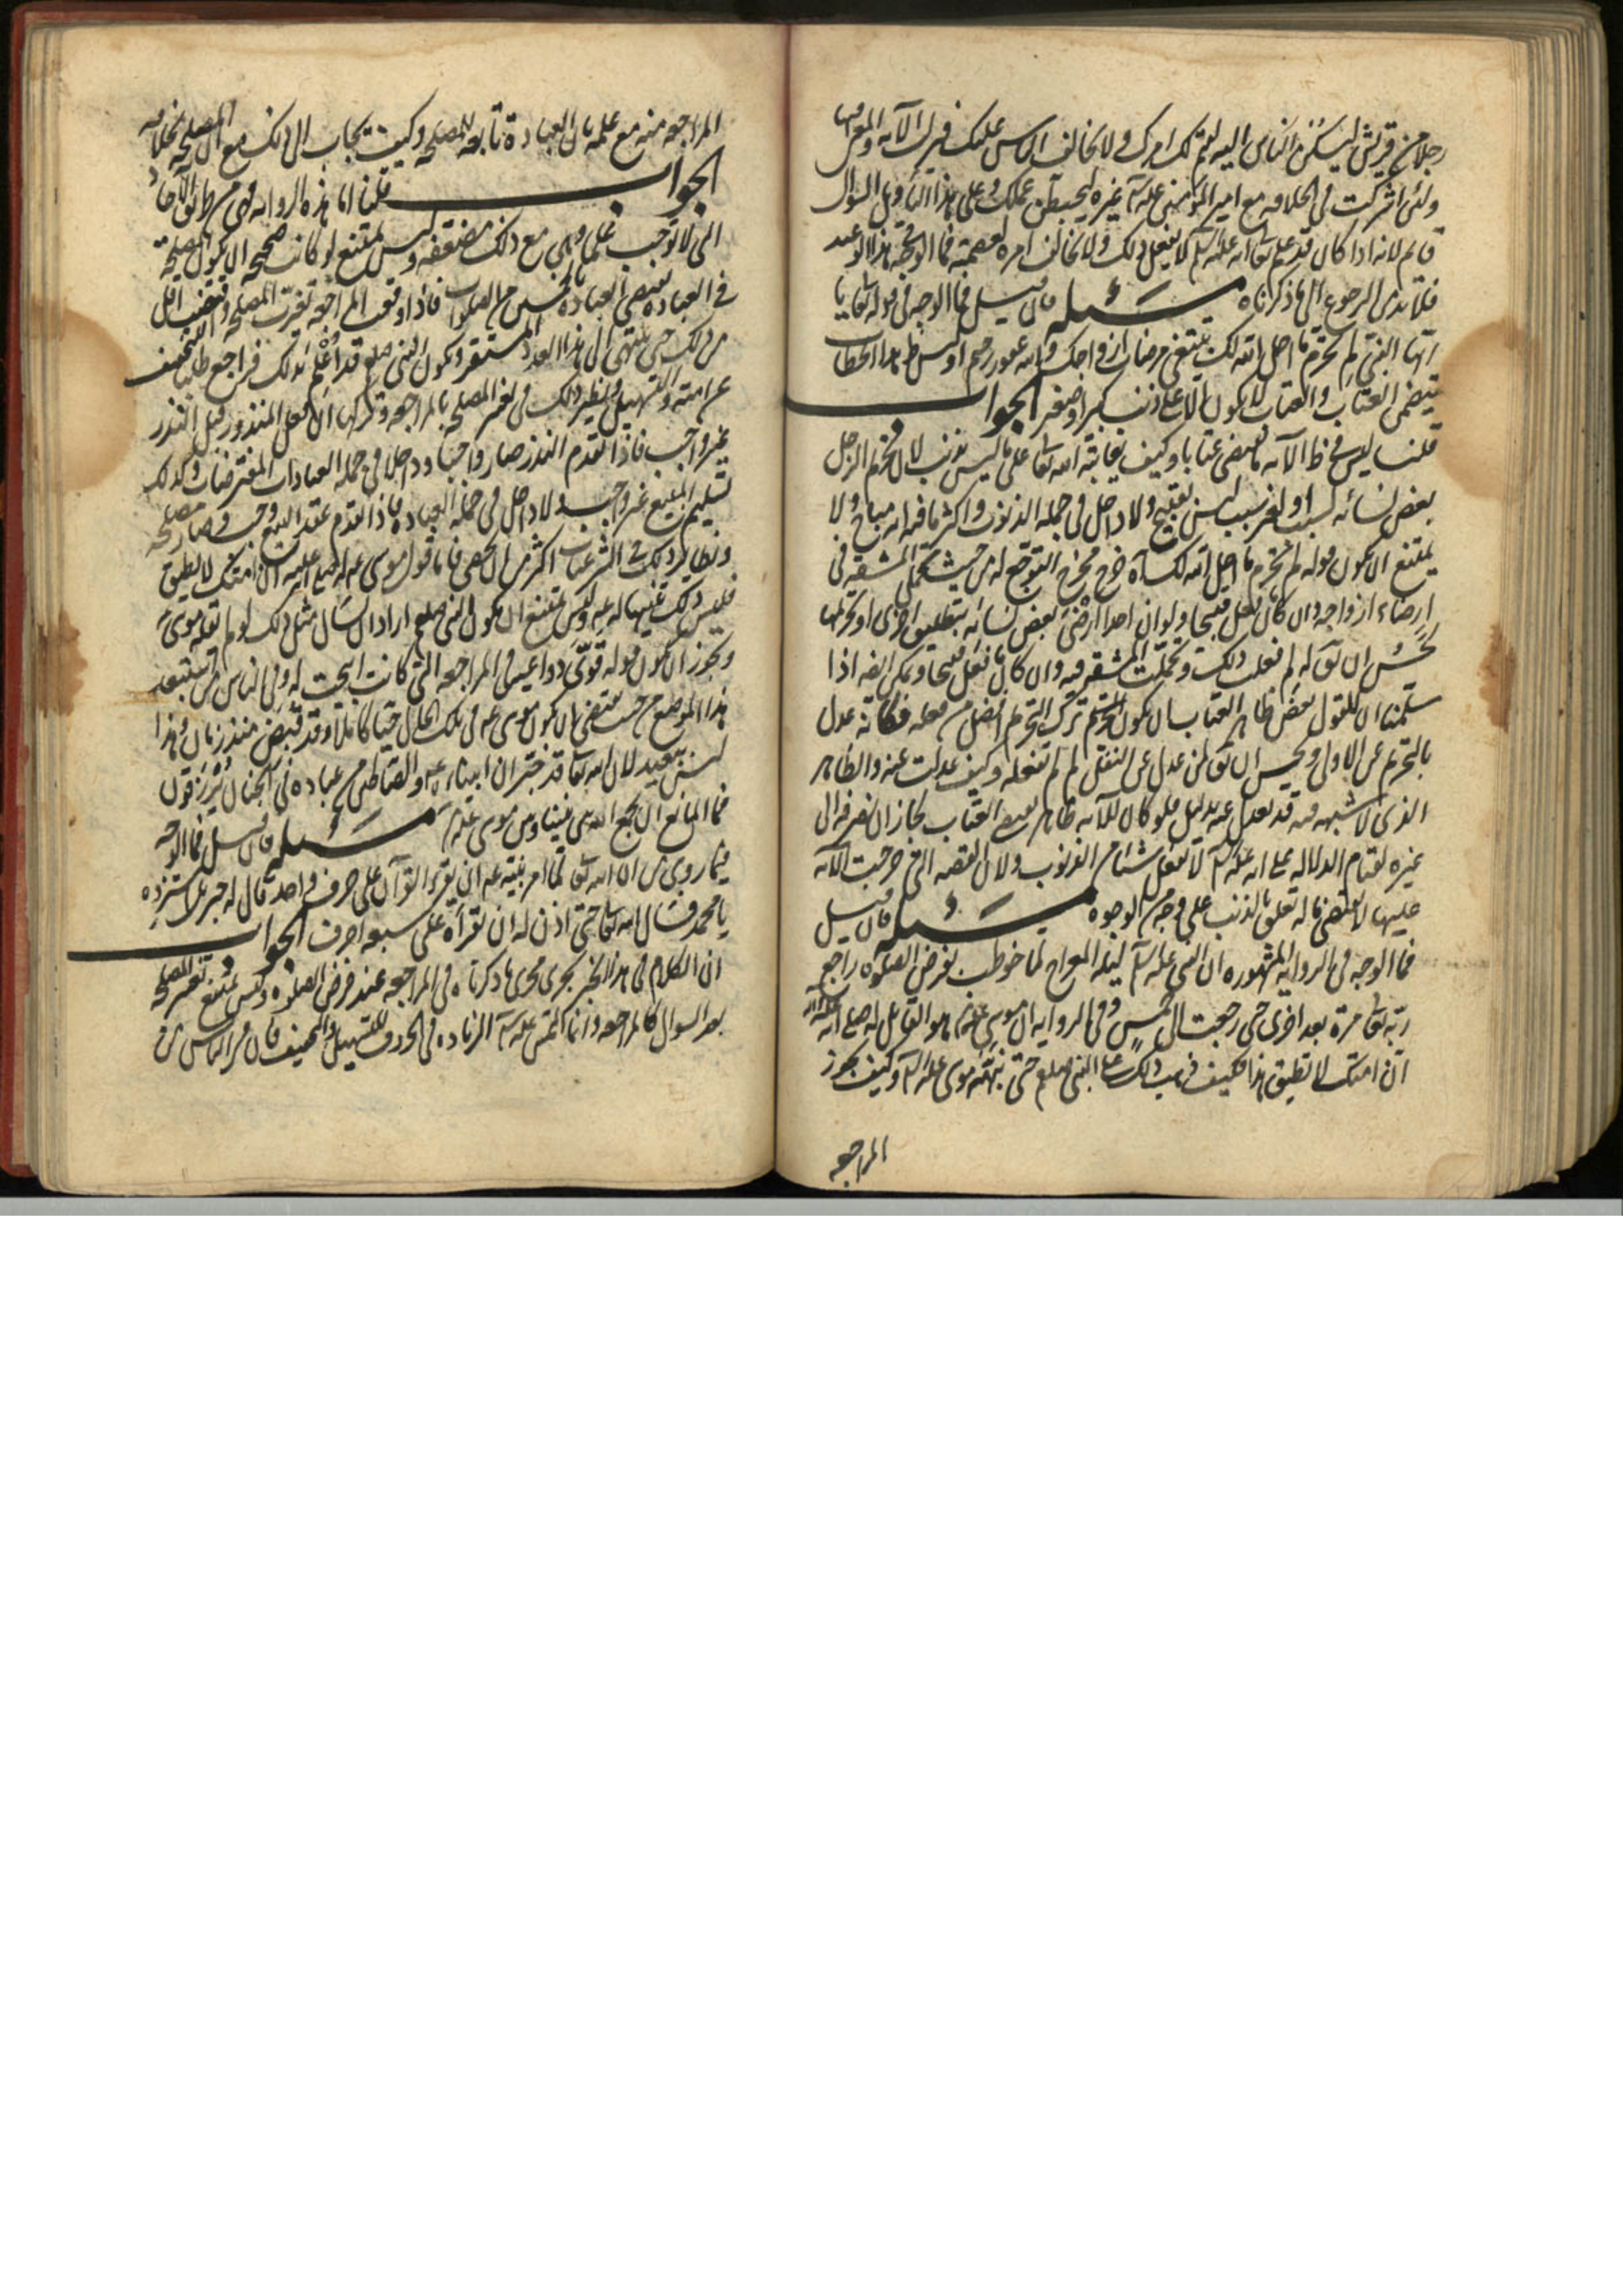 رجلا من قريش ليسكن الناس اليه ليتم لك امرك ولا يخالف الناس عليك فنزلت الآية والمعنى فيها
ولئن اشركت فى الخلافه مع امير المؤمنين عليه السلم غيره ليحبطن عملك وعلى هذا التأويل السؤال
قائم لانه اذا كان قد علم تعالى انه عليه السلم لا يفعل ذلك ولا يخالف امره لعصمته فما الوجه فى هذا الوعيد
فلا بد من الرجوع الى ما ذكرناه مسئله فان قيل فما الوجه فى قوله تعالى يا
ايها النبى لم تحرم ما احل الله لك تبتغى مرضات ازواجك والله غفور رحيم اوليس ظاهر هذا الخطاب
يتضمن العتاب والعتاب لا يكون الا على ذنب كبير او صغير الجواب
قلنا ليس فى ظاهر الآية ما يقتضى عتابا وكيف يعاتبه الله تعالى على ما ليس بذنب لان تحريم الرجل
بعض نسائه لسبب او لغير سبب ليس بقبيح ولا داخل فى جمله الذنوب واكثر ما فيه انه مباح ولا
يمتنع ان يكون قوله لم تحرم ما احل الله لك خرج مخرج التوجع له من حيث يتحمل المشقه فى
ارضاء ازواجه وان كان ما فعل قبيحا ولو ان احدا ارضى بعض نسائه بتطليق اخرى او تحريمها
لحسن ان يق له لم فعلت ذلك وتحملت المشقه فيه وان كان ما فعل قبيحا ويمكن ايضا اذا
سلمنا ان القول يقتضى ظاهره العتاب ان يكون ترك التحريم افضل من فعله فكانه عدل
بالتحريم عن الاولى ويحسن ان يق لمن عدل عن النفل لم لم تفعله وكيف عدلت عنه والظاهر
الذى لا شبهه فيه قد يعدل عنه بدليل فلو كان للآيه ظاهر يقتضى العتاب لجاز ان نصرفه الى
غيره لقيام الدلاله على انه عليه السلم لا يفعل شيئا من الذنوب ولان القصه التى خرجت الآيه
عليها لا يقتضى ما له تعلق بالذنب على وجه من الوجوه مسئله فان قيل
فما الوجه فى الروايه المشهوره ان النبى عليه السلم ليله المعراج لما خوطب بفرض الصلوه راجع
ربه تعالى مرة بعد اخرى حتى رجعت الى خمس وفى الروايه ان موسى عليه السلم هو القائل له صلى الله عليه وآله
ان امتك لا تطيق هذا فكيف ذهب ذلك على النبى صلعم حتى نبهه موسى عليه السلم وكيف يجوز
المراجعه
المراجعه منه مع علمه بان العبادة تابعه للمصلحه وكيف يجاب الى ذلك مع ان المصلحه بخلافه
الجواب قلنا اما هذه الروايه فهى من طريق الآحاد
التى لا توجب علما وهى مع ذلك مضعفه وليس يمتنع لو كانت صحيحه ان يكون المصلحه
فى العباده يقتضى العباده بالخمس من الصلوات فاذا وقعت المراجعه تغيرت المصلحه واقتضت اقل
من ذلك حتى ينتهى الى هذا العدد المستقر ويكون النبى صلعم قد اعلم بذلك فراجع طلبا للتخفيف
عن امته والتسهيل ونظير ذلك فى تغير المصلحه بالمراجعه وتركها ان فعل المنذور قبل النذر
غير واجب فاذا تقدم النذر صار واجبا وداخلا فى جمله العبادات المفترضات وكذلك
تسليم المبيع غير واجب ولا داخل فى جمله العباده فاذا تقدم عقد البيع وجب وصار مصلحه
ونظائر ذلك فى الشرعيات اكثر من ان تحصى فاما قول موسى عه له صلى الله عليه ان امتك لا تطيق
فليس ذلك تنبيها له عه وليس يمتنع ان يكون النبى صلعم اراد ان يسال مثل ذلك لو لم يقله موسى
ويجوز ان يكون قوله قوّى دواعيه فى المراجعه التى كانت ابيحت له وفى الناس من استبعد
هذا الموضع من حيث يقتضى ان يكون موسى عه فى تلك الحال حيا كاملا وقد قبض منذ زمان وهذا
ليس ببعيد لان الله تعالى قد خبر ان انبياءه عه والصالحين من عباده فى الجنان يرزقون
فما المانع ان يجمع الله بين نبينا وبين موسى عليه السلم مسئله فان قيل فما الوجه
فيما روى من ان الله تعالى لما امر نبيه عه ان يقرء القرآن على حرف واحد قال له جبرئل استزده
يا محمد فسال الله تعالى حتى اذن له ان يقرأه على سبعه احرف الجواب
ان الكلام فى هذا الخبر يجرى مجرى ما ذكرناه فى المراجعه عند فرض الصلوه وليس يمتنع تغير المصلحه
بعد السوال كالمراجعه وانما التمس عليه السلم الزياده فى الحروف للتسهيل والتخفيف فان من الناس من